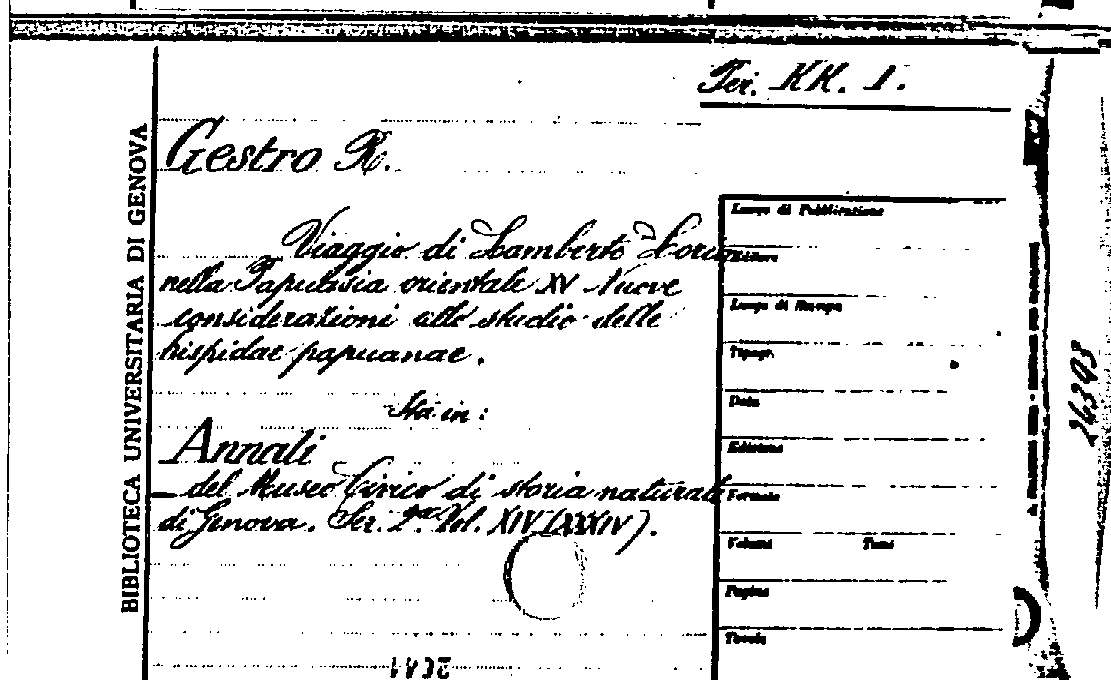 Per. KK. 1.
Gestro R.
Viaggio di Lamberto Loria
nella Papuasia orientale XV Nuove
considerazioni allo studio delle
hispidae papuanae.
Sta in:
Annali
del Museo Civico di storia naturale
di Genova. Ser. 2ª. Vol. XIV (XXXIV).
BIBLIOTECA UNIVERSITARIA DI GENOVA
Luogo di Pubblicazione
Editore
Luogo di Stampa
Tipogr.
Data
Edizione
Formato
Volumi Tomi
Pagine
Tavole
26393